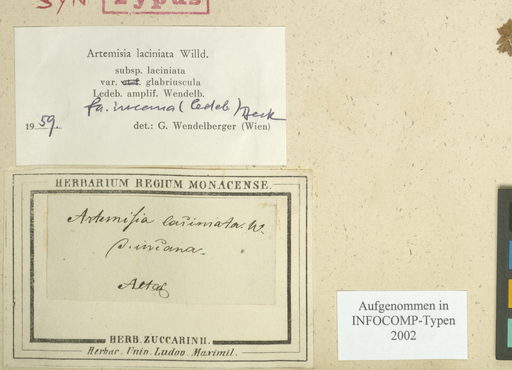 SYN Typus
Artemisia laciniata Willd.
subsp. laciniata
var. glabriuscula
Ledeb. amplif. Wendelb.
fa. incana (Ledeb.)
1959. det.: G. Wendelberger (Wien)
HERBARIUM REGIUM MONACENSE.
Artemisia laciniata. W.
β. incana.
Altai
HERB. ZUCCARINII.
Herbar. Univ. Ludov. Maximil.
Aufgenommen in
INFOCOMP-Typen
2002